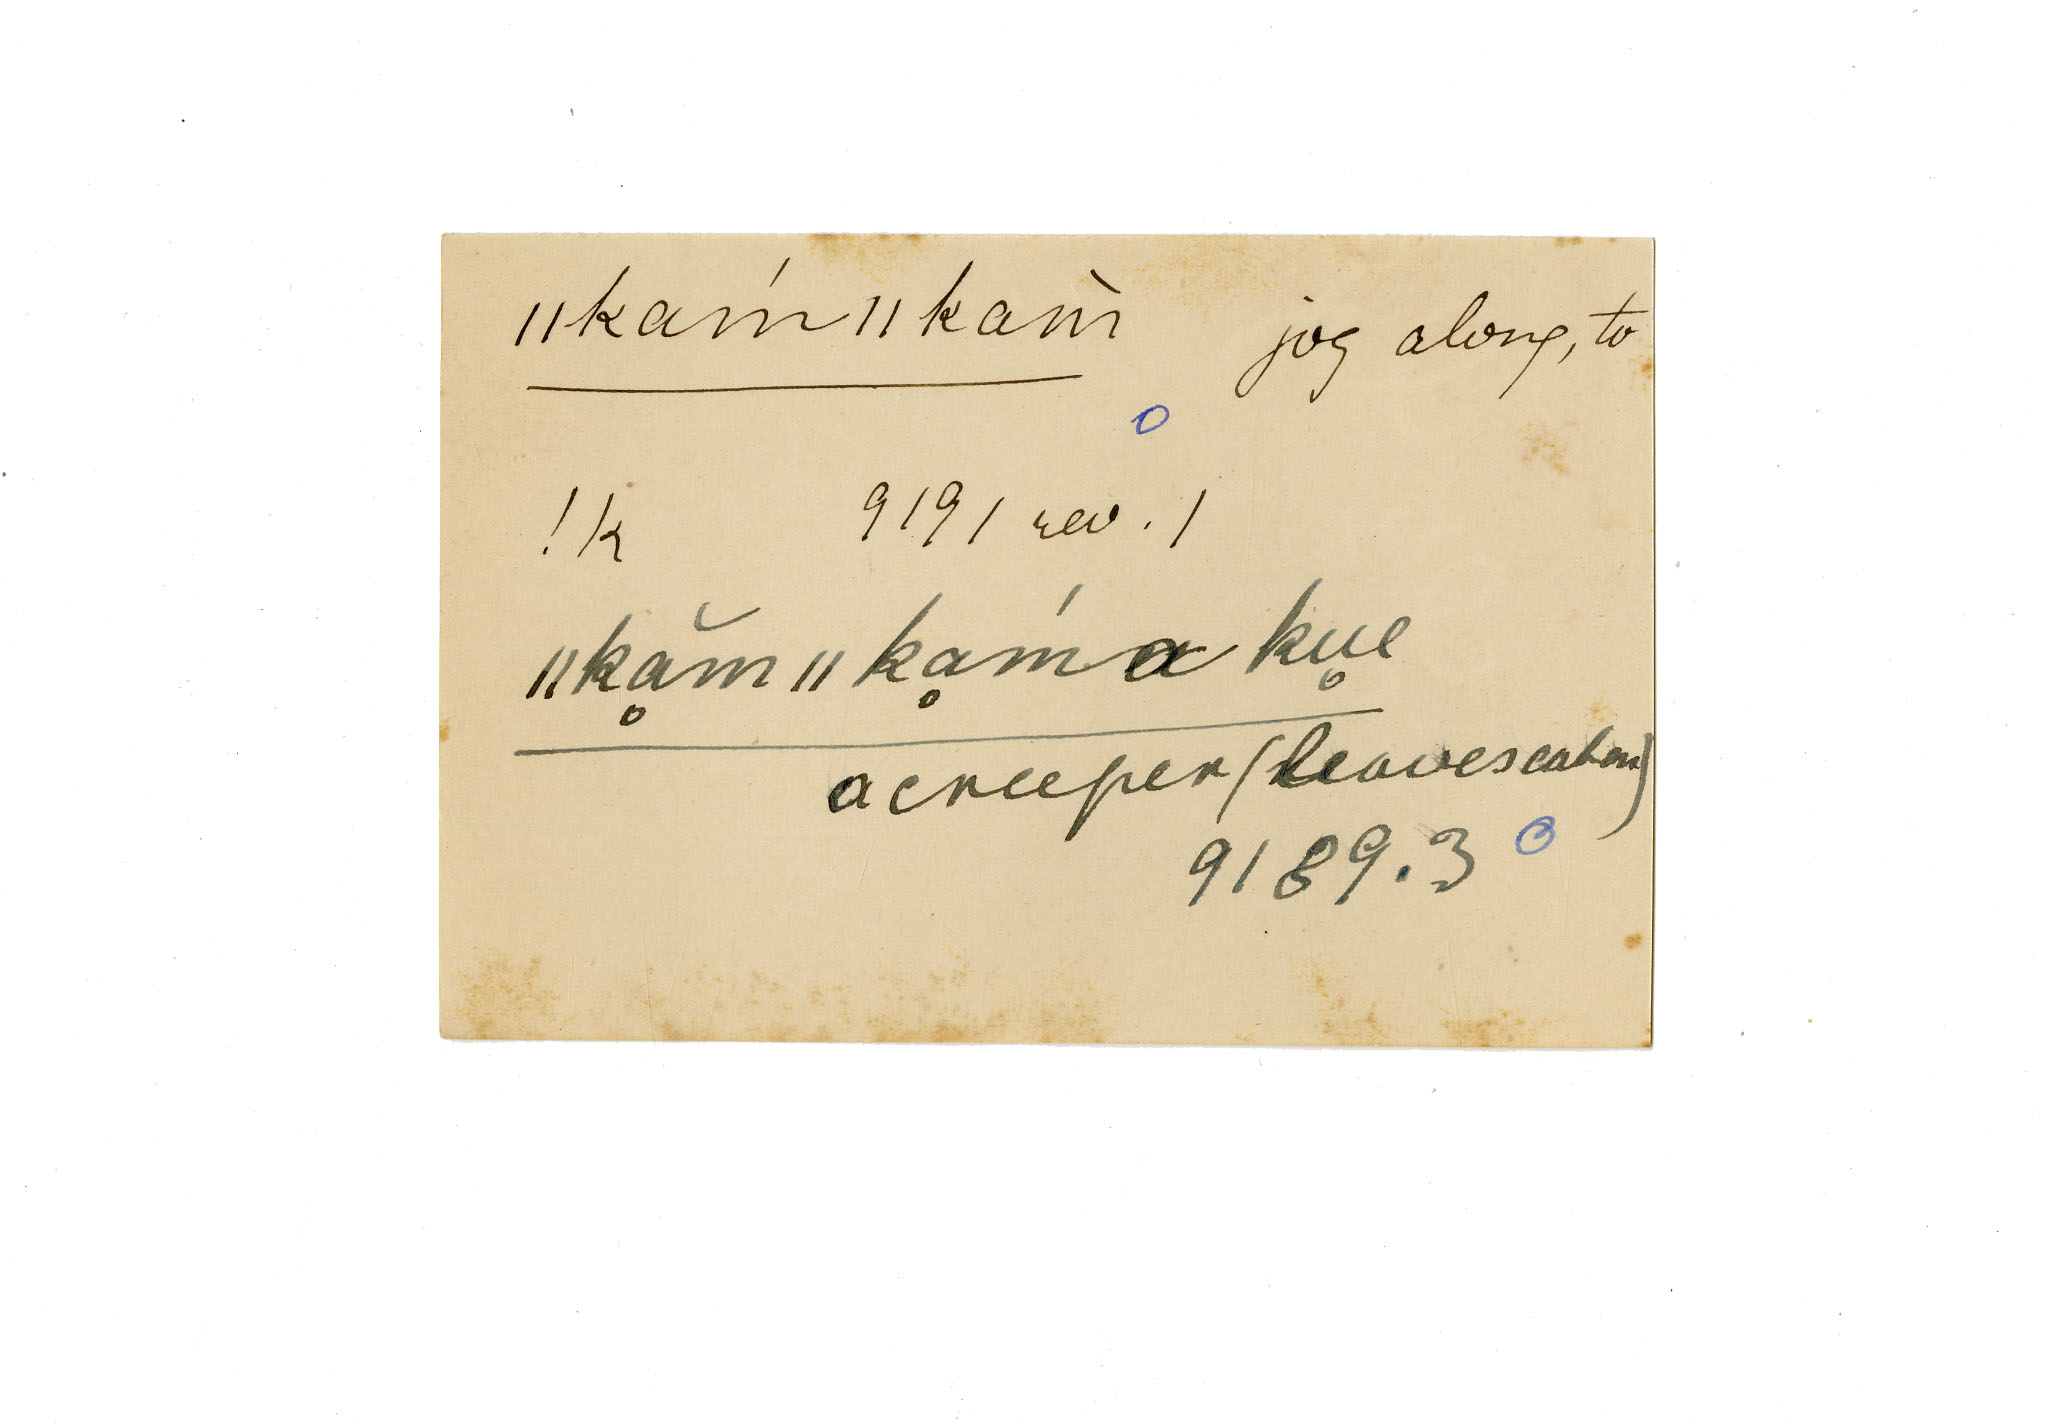 ǁkaḿǁkam̀ jog along, to
!k 9191 rev. 1
ǁkḁ̆mǁkḁḿa ku̥e
a creeper (leaves eaten)
9189.3